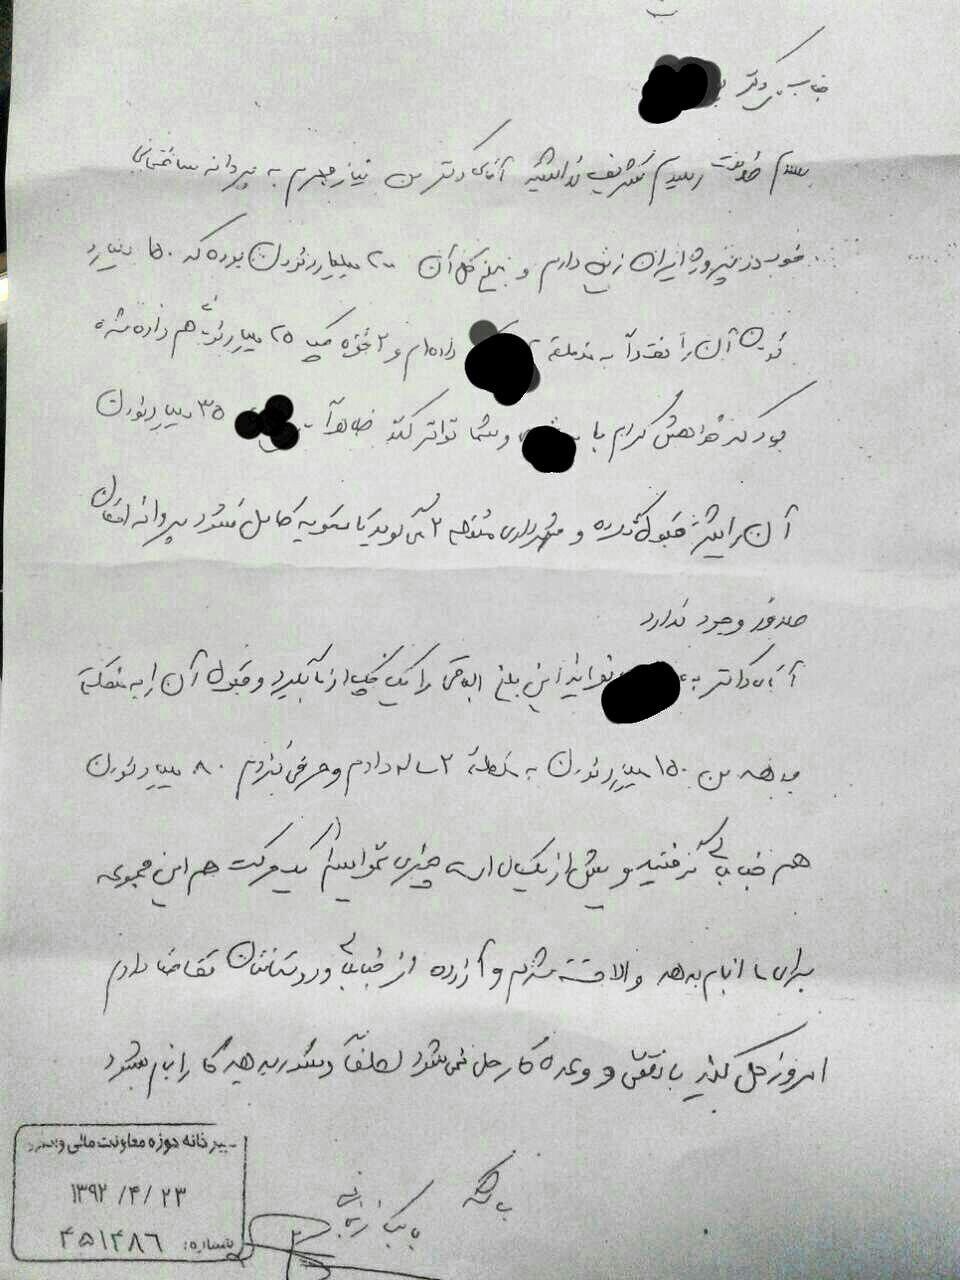 جناب دکتر
سلام خدمت رسیدم تشریف نداشتید آقای دکتر من نیاز مبرم به پروانه ساختمانی
خود در پروژه ایران زمین دارم و مبلغ کل آن ۲۰۰ میلیارد تومان بوده که ۱۵۰ میلیارد
تومان آن را نقداً به منطقه ۲ داده‌ام و ۲ فقره چک ۲۵ میلیارد تومانی هم داده شده
بود که خواهش کردم با و شما تهاتر کنند ظاهراً ۳۵ میلیارد تومان
آن را بیشتر قبول نکرده و شهرداری منطقه ۲ می‌گوید تا تسویه کامل نشود پروانه امکان
صدور وجود ندارد
آقای دکتر نتوانید این مبلغ الباقی را یک چک از ما بگیرد و قبول آن را به منطقه
بدهد من ۱۵۰ میلیارد تومان به منطقه ۲ ساله دادم و حرفی نزدم ۸۰ میلیارد تومان
هم جنابعالی گرفتید و بیش از یکسال است چیزی نخواستم یک حرکت هم این مجموعه
برای ما انجام بدهد والا خسته شدم و آزرده از جنابعالی و دوستانتان تقاضا دارم
امروز حل کنید با تلفن و وعده کار حل نمی‌شود لطفاً دستور بدهید کار انجام بشود
با تشکر
بابک زنجانی
دبیرخانه حوزه معاونت مالی و
۱۳۹۲ /۴/ ۲۳
شماره: ۴۵۱۴۸۶